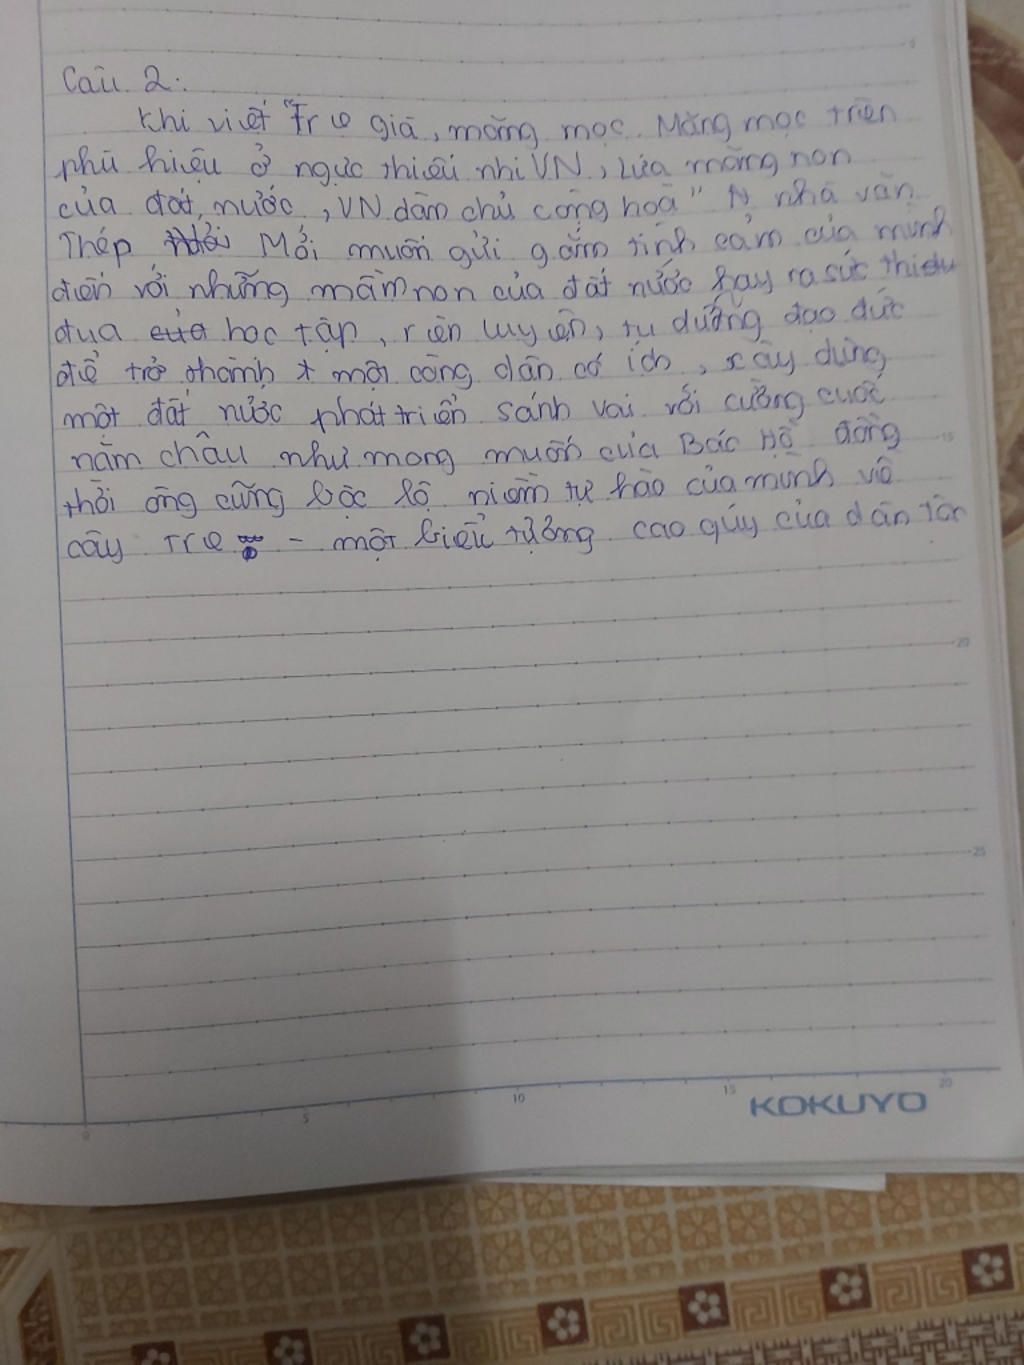 Câu 2:
Khi viết "Tre già, măng mọc. Măng mọc trên
phù hiệu ở ngực thiếu nhi VN, lứa măng non
của đất nước, VN dân chủ cộng hoà" nhà văn
Thép Mới muốn gửi gắm tình cảm của mình
đến với những mầm non của đất nước hãy ra sức thiđu
đua học tập, rèn luyện, tu dưỡng đạo đức
để trở thành một công dân có ích, xây dựng
một đất nước phát triển sánh vai với cường cuốc
năm châu như mong muốn của Bác Hồ đồng
thời ông cũng bộc lộ niềm tự hào của mình về
cây tre - một biểu tượng cao qúy của dân tộc
5
15
20
25
0
5
10
15
20
KOKUYO